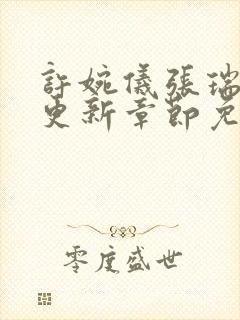 許婉儀張瑞
更新章節免
零度盛世